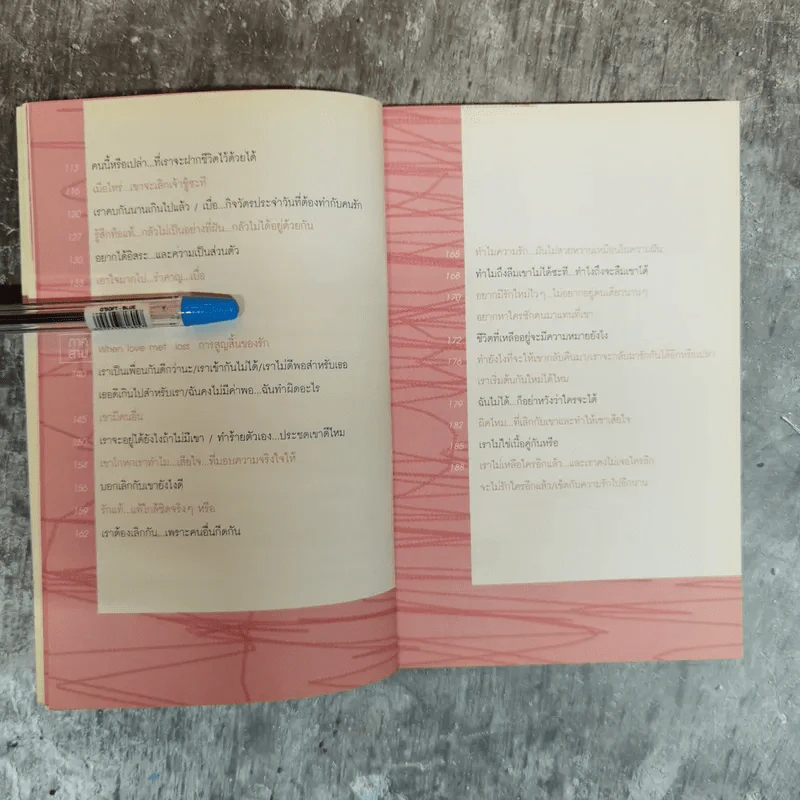 113 คนนี้หรือเปล่า...ที่เราจะฝากชีวิตไว้ด้วยได้
116 เมื่อไหร่...เขาจะเลิกเจ้าชู้ซะที
120 เราคบกันนานเกินไปแล้ว / เบื่อ...กิจวัตรประจำวันที่ต้องทำกับคนรัก
127 รู้สึกท้อแท้...กลัวไม่เป็นอย่างที่ฝัน...กลัวไม่ได้อยู่ด้วยกัน
130 อยากได้อิสระ...และความเป็นส่วนตัว
133 เอาใจมากไป...รำคาญ...เบื่อ
G'SOFT - BLUE
ภาค
สาม When love met lost การสูญสิ้นของรัก
140 เราเป็นเพื่อนกันดีกว่านะ/เราเข้ากันไม่ได้/เราไม่ดีพอสำหรับเธอ
เธอดีเกินไปสำหรับเรา/ฉันคงไม่มีค่าพอ...ฉันทำผิดอะไร
145 เขามีคนอื่น
150 เราจะอยู่ได้ยังไงถ้าไม่มีเขา / ทำร้ายตัวเอง...ประชดเขาดีไหม
154 เขาโกหกเราทำไม...เสียใจ...ที่มอบความจริงใจให้
156 บอกเลิกกับเขายังไงดี
159 รักแท้...แพ้ใกล้ชิดจริงๆ หรือ
162 เราต้องเลิกกัน...เพราะคนอื่นกีดกัน
165 ทำไมความรัก...มันไม่สวยหวานเหมือนในความฝัน
168 ทำไมถึงลืมเขาไม่ได้ซะที...ทำไงถึงจะลืมเขาได้
170 อยากมีรักใหม่ไวๆ...ไม่อยากอยู่คนเดียวนานๆ
อยากหาใครซักคนมาแทนที่เขา
172 ชีวิตที่เหลืออยู่จะมีความหมายยังไง
176 ทำยังไงที่จะให้เขากลับคืนมา/เราจะกลับมารักกันได้อีกหรือเปล่า
เราเริ่มต้นกันใหม่ได้ไหม
179 ฉันไม่ได้...ก็อย่าหวังว่าใครจะได้
182 ผิดไหม...ที่เลิกกับเขาและทำให้เขาเสียใจ
185 เราไม่ใช่เนื้อคู่กันหรือ
188 เราไม่เหลือใครอีกแล้ว...และเราคงไม่เจอใครอีก
จะไม่รักใครอีกแล้ว/เข็ดกับความรักไปอีกนาน